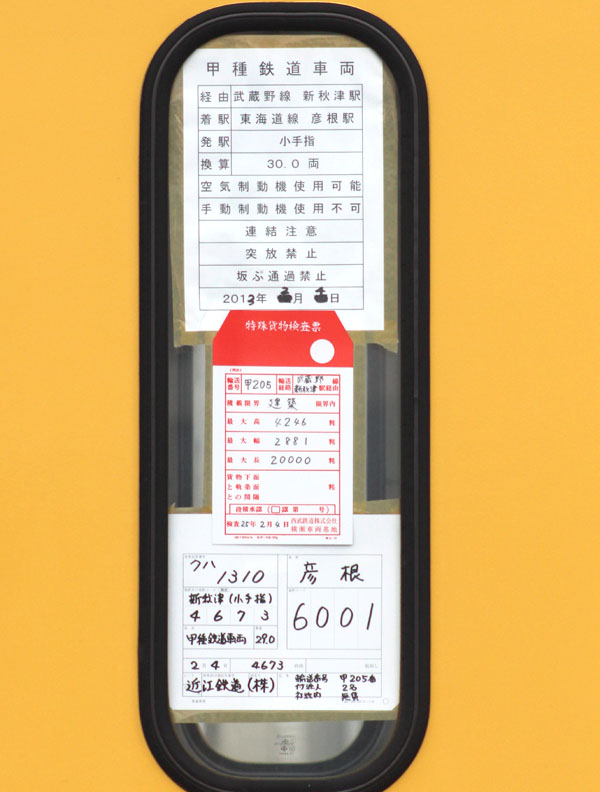 甲種鉄道車両
経由 武蔵野線 新秋津駅
着駅 東海道線 彦根駅
発駅 小手指
換算 30.0 両
空気制動機使用可能
手動制動機使用不可
連結注意
突放禁止
坂ぶ通過禁止
2013年 2月 4日
特殊貨物検査票
輸送番号 甲205 輸送経路 武蔵野線 新秋津駅経由
積載限界 建築 限界内
最大高 4246 粍
最大幅 2881 粍
最大長 20000 粍
貨物下面
と軌条面 粍
との間隔
往積承認 ( 第 号)
検査 25年 2月 4日 西武鉄道株式会社
横瀬車両基地
クハ
1310
彦根
新秋津(小手指)
4673
6001
甲種鉄道車両 29.0
2月4日 4673
近江鉄道(株)
輸送番号 甲205番
付添人 2名